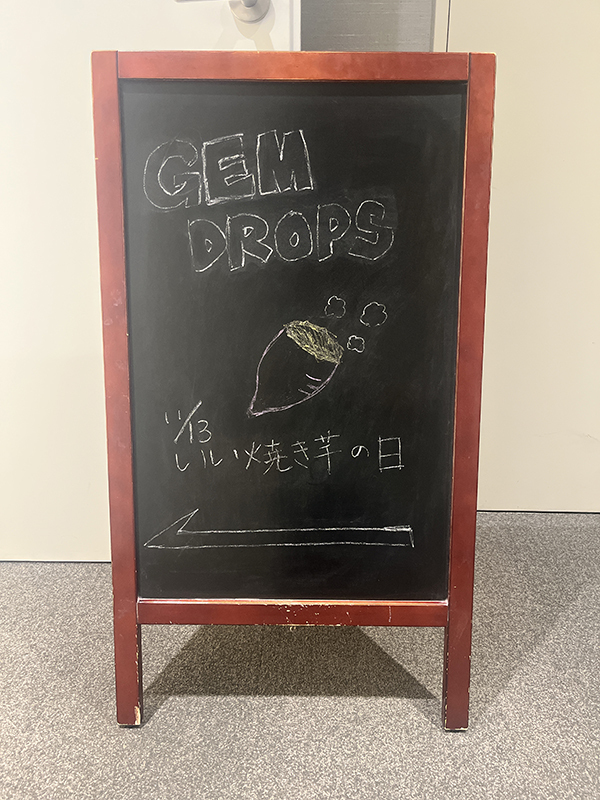 GEM
DROPS
11/13
いい焼き芋の日